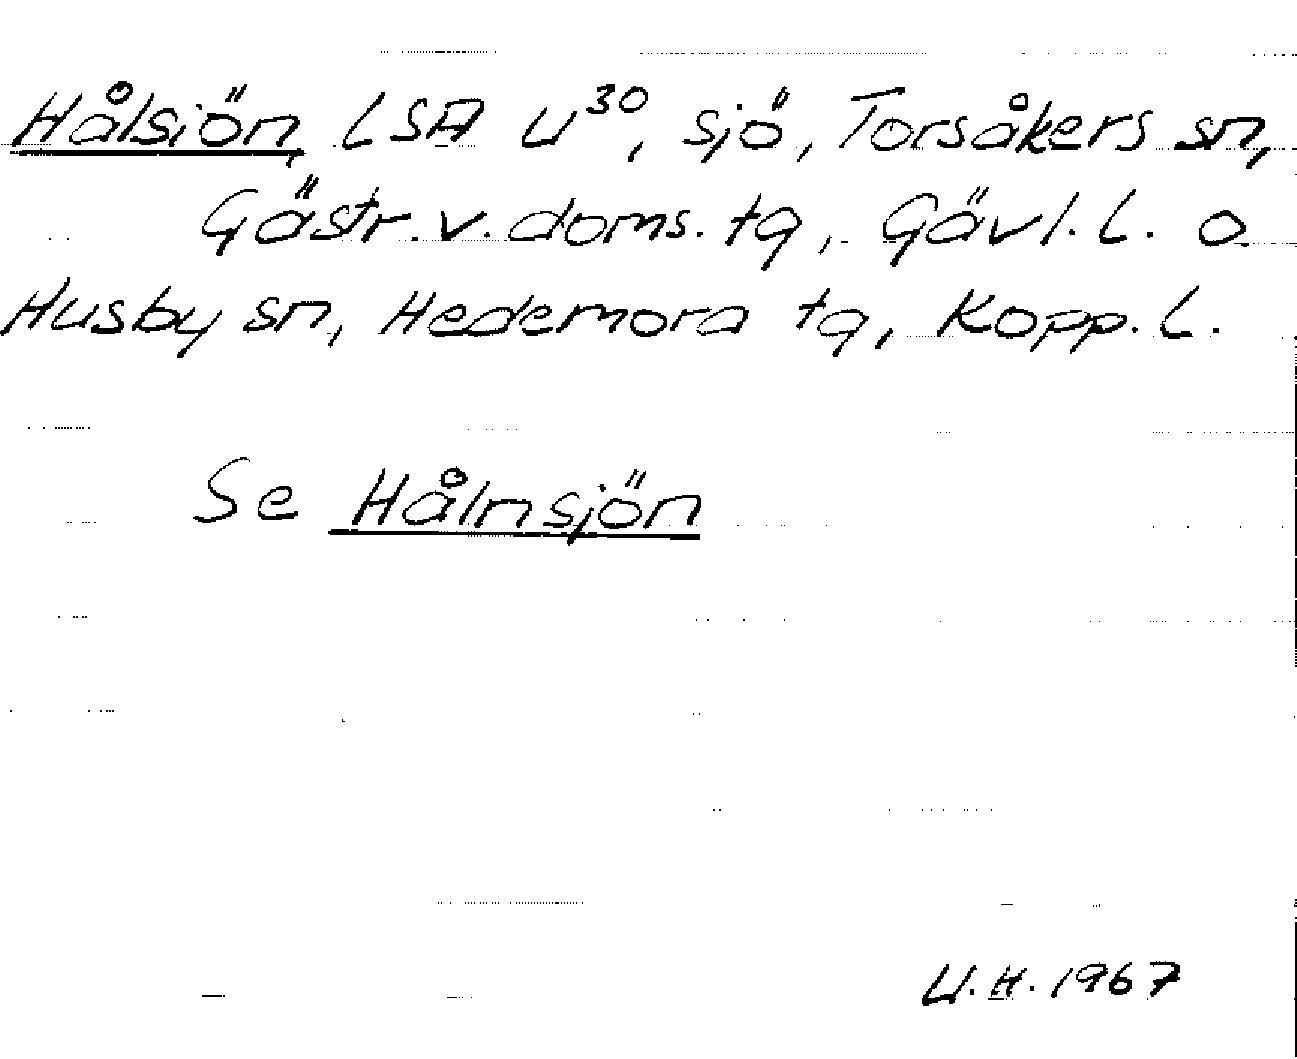 Hålsiön, LSA U30, sjö, Torsåkers sn,
Gästr. v. doms. tg, Gävl. L. o.
Husby sn, Hedemora tg, Kopp. L.
Se Hålmsjön
U. H. 1967